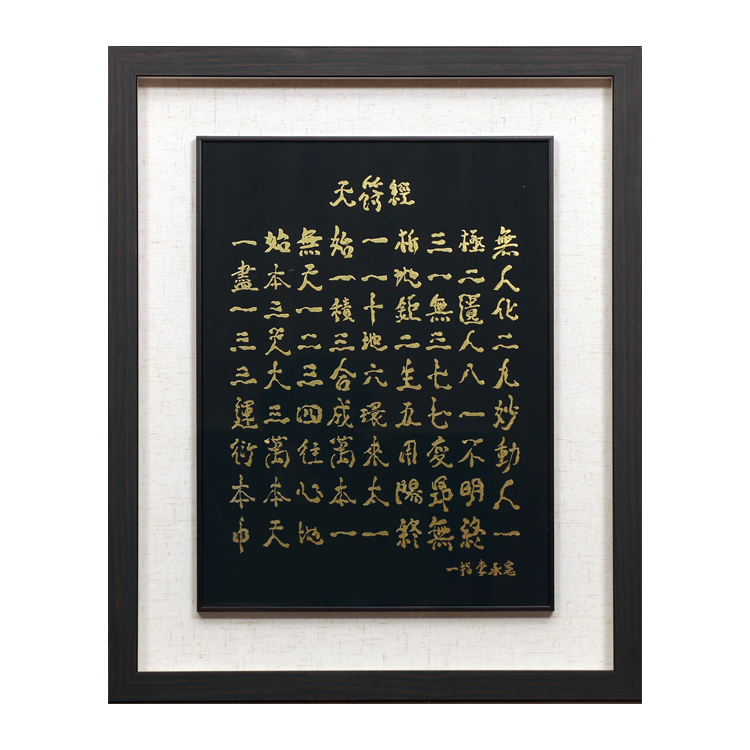 天符經
一始無始一析三極無
盡本天一一地一二人
一三一積十鉅無匱化
三天二三地二三人二
三大三合六生七八九
運三四成環五七一妙
衍萬往萬來用變不動
本本心本太陽昻明人
中天地一一終無終一
一指 李承憲